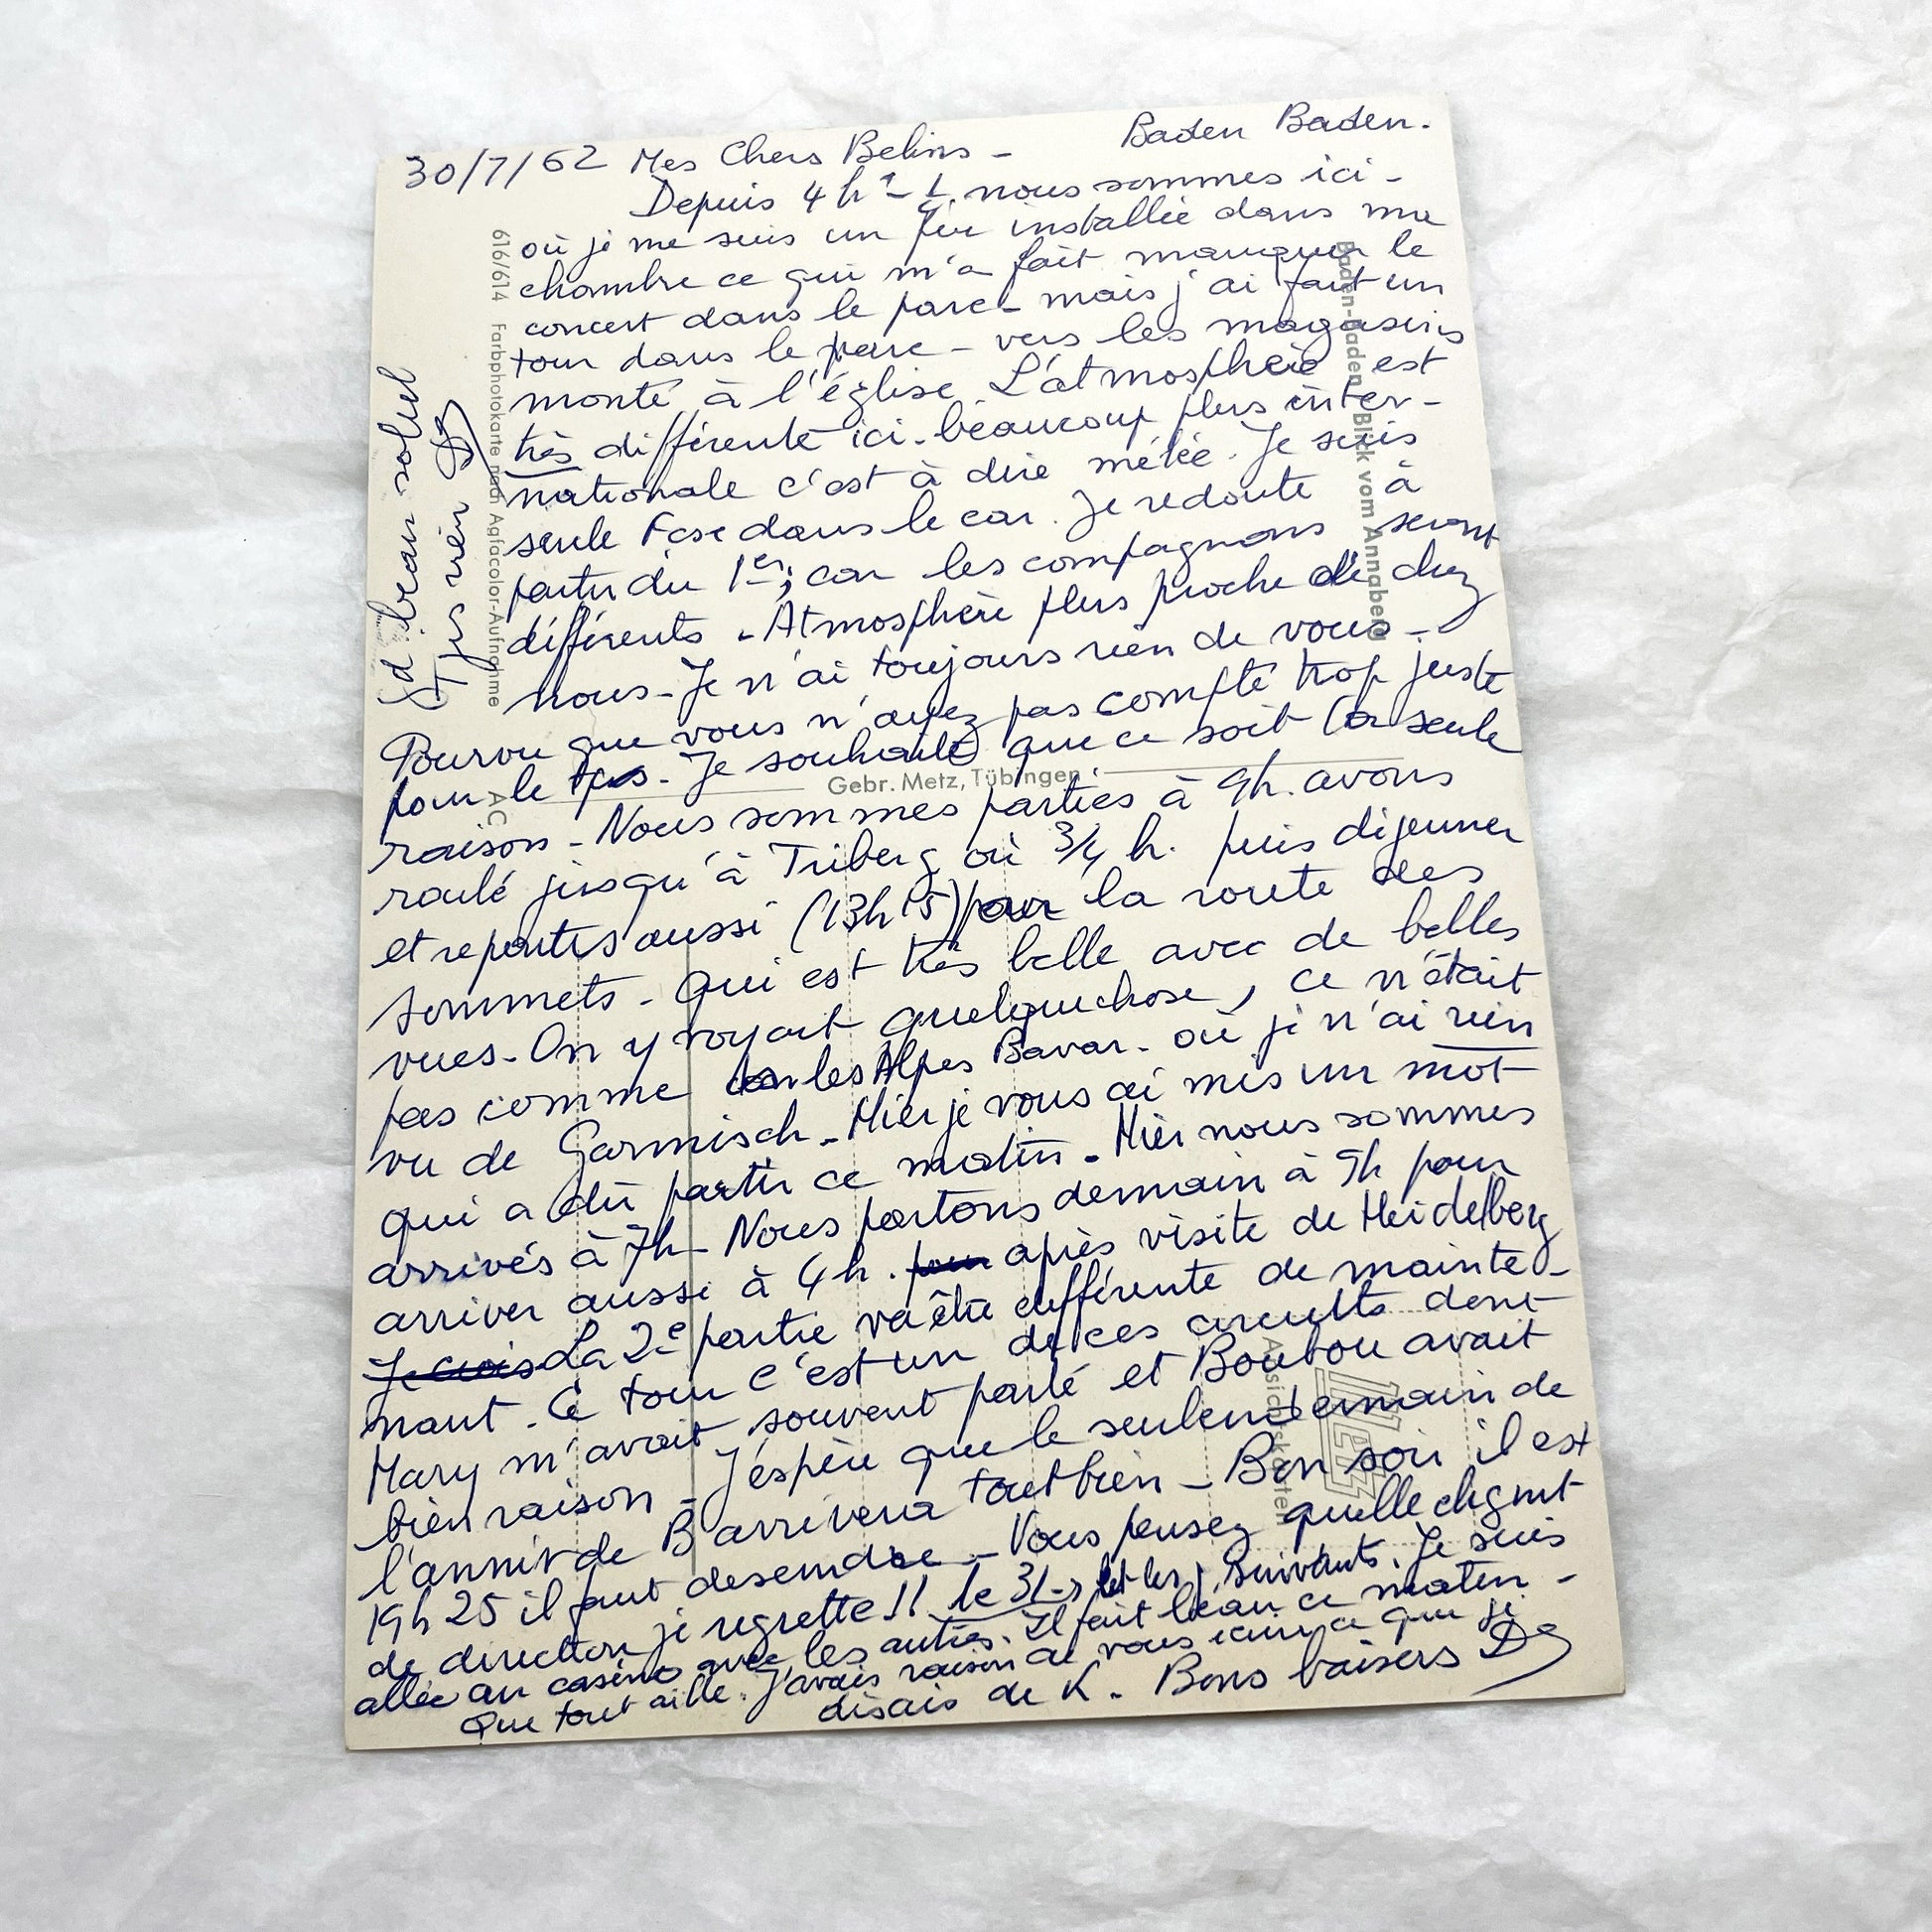 30/7/62 Mes Chers Belins - Baden Baden.
Depuis 4 h nous sommes ici -
où je me suis un peu installée dans ma
chambre ce qui m'a fait manquer le
concert dans le parc - mais j'ai fait un
tour dans le parc - vers les magasins
monté à l'église. L'atmosphère est
très différente ici - beaucoup plus inter-
nationale c'est à dire mêlée. Je suis
seule Fçse dans le car. Je redoute à
partir du 1er; car les compagnons seront
différents - Atmosphère plus proche de chez
nous - Je n'ai toujours rien de vous -
Pourvu que vous n'ayez pas compté trop juste
pour le tps - Je souhaite que ce soit la seule
raison - Nous sommes parties à 9h. avons
roulé jusqu'à Triberg où 3/4 h. puis déjeuner
et repartis aussi (13h 15) pour la route des
sommets - qui est très belle avec de belles
vues - On y voyait quelquechose, ce n'était
pas comme les Alpes Bavar. où je n'ai rien
vu de Garmisch - Hier je vous ai mis un mot
qui a dû partir ce matin - Hier nous sommes
arrivés à 7h - Nous partons demain à 9h pour
arriver aussi à 4h. pour après visite de Heidelberg
Je crois La 2e partie va être différente de mainte-
nant. Ce tour c'est un de ces circuits dont
Mary m'avait souvent parlé et Boubou avait
bien raison - J'espère que le surlendemain de
l'annivr de B arrivera tout bien - Bon soir il est
19h 25 il faut descendre - Vous pensez quelle chgmt
de direction je regrette !! le 31 et les j. suivants. Je suis
allée au casino avec les autres. Il fait beau ce matin -
Que tout aille. J'avais raison de vous écrire ce que je
disais de K. Bons baisers D
Gd beau soleil
Tjrs rien D
616/614 Farbphotokarte nach Agfacolor-Aufnahme
AC
Baden-Baden, Blick vom Annaberg
Gebr. Metz, Tübingen
Metz
Ansichtskarten